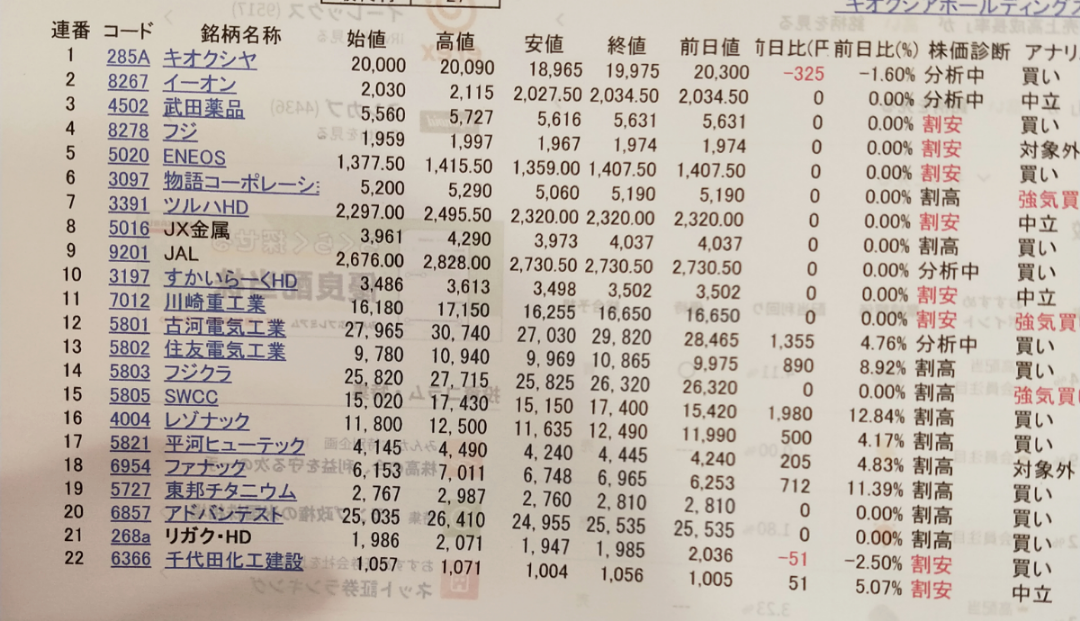 キオクシアホールディングス
連番 コード 銘柄名称 始値 高値 安値 終値 前日値 前日比(円 前日比(%) 株価診断 アナリ
1 285A キオクシヤ 20,000 20,090 18,965 19,975 20,300 −325 −1.60% 分析中 買い
2 8267 イーオン 2,030 2,115 2,027.50 2,034.50 2,034.50 0 0.00% 分析中 中立
3 4502 武田薬品 5,560 5,727 5,616 5,631 5,631 0 0.00% 割安 買い
4 8278 フジ 1,959 1,997 1,967 1,974 1,974 0 0.00% 割安 対象外
5 5020 ENEOS 1,377.50 1,415.50 1,359.00 1,407.50 1,407.50 0 0.00% 割安 買い
6 3097 物語コーポレーシ 5,200 5,290 5,060 5,190 5,190 0 0.00% 割高 強気買
7 3391 ツルハHD 2,297.00 2,495.50 2,320.00 2,320.00 2,320.00 0 0.00% 割安 中立
8 5016 JX金属 3,961 4,290 3,973 4,037 4,037 0 0.00% 割高 買い
9 9201 JAL 2,676.00 2,828.00 2,730.50 2,730.50 2,730.50 0 0.00% 分析中 買い
10 3197 すかいらーくHD 3,486 3,613 3,498 3,502 3,502 0 0.00% 割安 中立
11 7012 川崎重工業 16,180 17,150 16,255 16,650 16,650 0 0.00% 割安 強気買
12 5801 古河電気工業 27,965 30,740 27,030 29,820 28,465 1,355 4.76% 分析中 買い
13 5802 住友電気工業 9,780 10,940 9,969 10,865 9,975 890 8.92% 割高 買い
14 5803 フジクラ 25,820 27,715 25,825 26,320 26,320 0 0.00% 割高 強気買
15 5805 SWCC 15,020 17,430 15,150 17,400 15,420 1,980 12.84% 割高 買い
16 4004 レゾナック 11,800 12,500 11,635 12,490 11,990 500 4.17% 割高 買い
17 5821 平河ヒューテック 4,145 4,490 4,240 4,445 4,240 205 4.83% 割高 対象外
18 6954 ファナック 6,153 7,011 6,748 6,965 6,253 712 11.39% 割高 買い
19 5727 東邦チタニウム 2,767 2,987 2,760 2,810 2,810 0 0.00% 割高 買い
20 6857 アドバンテスト 25,035 26,410 24,955 25,535 25,535 0 0.00% 割高 買い
21 268a リガク・HD 1,986 2,071 1,947 1,985 2,036 −51 −2.50% 割安 買い
22 6366 千代田化工建設 1,057 1,071 1,004 1,056 1,005 51 5.07% 割安 中立